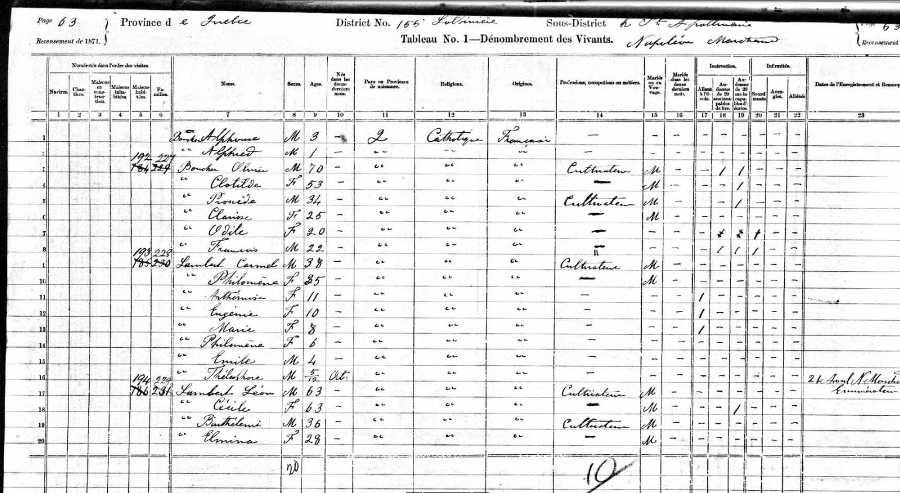 Page 63 Province d e Quebec District No. 155 Lotbinière Sous-District h St Apollinaire 63
Recensement de 1871. Tableau No. 1—Dénombrement des Vivants. Napoléon Marchand Recensement
Numérotés dans l'ordre des visites Instruction. Infirmités.
Navires. Maisons en construction. Maisons inhabitées. Maisons habitées. Familles. Noms. Sexes. Ages. Nés dans les douze derniers mois. Pays ou Province de naissance. Religions. Origines. Professions, occupations ou métiers. Mariés ou en Veuvage. Mariés dans les douze derniers mois. Allant à l'école. Au-dessus de 20 ans incapables de lire. Au-dessus de 20 ans incapables d'écrire. Sourds-muets Aveugles. Aliénés Dates de l'Enregistrement et Remarq
1 2 3 4 5 6 7 8 9 10 11 12 13 14 15 16 17 18 19 20 21 22 23
1 Alphonse M 3 – Q Catholique Française –
2 " Alphred M 1 – " " " –
3 192 227 184 229 Boucher Olivier M 70 – " " " Cultivateur M – – 1 1 – – –
4 " Clotilde F 53 – " " " – M – – – 1 – – –
5 " M 34 – " " " Cultivateur M – – – 1 – – –
6 " Clarisse F 25 – " " " – M – – – – – – –
7 " Odile F 20 – " " " –
8 " François M 22 – " " " " – – – 1 1 1 – –
9 193 228 185 230 Lambert Carmel M 38 – " " " Cultivateur M – – – – – – –
10 " Philomène F 35 – " " " – M – – – – – – –
11 " Arthémise F 11 – " " " – – – 1 – – – – –
12 " Eugénie F 10 – " " " – – – 1 – – – – –
13 " Marie F 8 – " " " – – – 1 – – – – –
14 " Philomène F 6 – " " " – – – – – – – – –
15 " Emile M 4 – " " " – – – – – – – – –
16 " Thélesphore M 5/12 Oct. " " " – – – – – – – – –
17 194 229 186 231 Lambert Léon M 63 – " " " Cultivateur M – – – – – – – 24 Avril N. Marchand Enumérateur
18 " Cécile F 63 – " " " – M – – – 1 – – –
19 " Barthélemi M 36 – " " " Cultivateur M – – – – – – –
20 " Elmina F 28 – " " " – M – – – – – – –
20 10